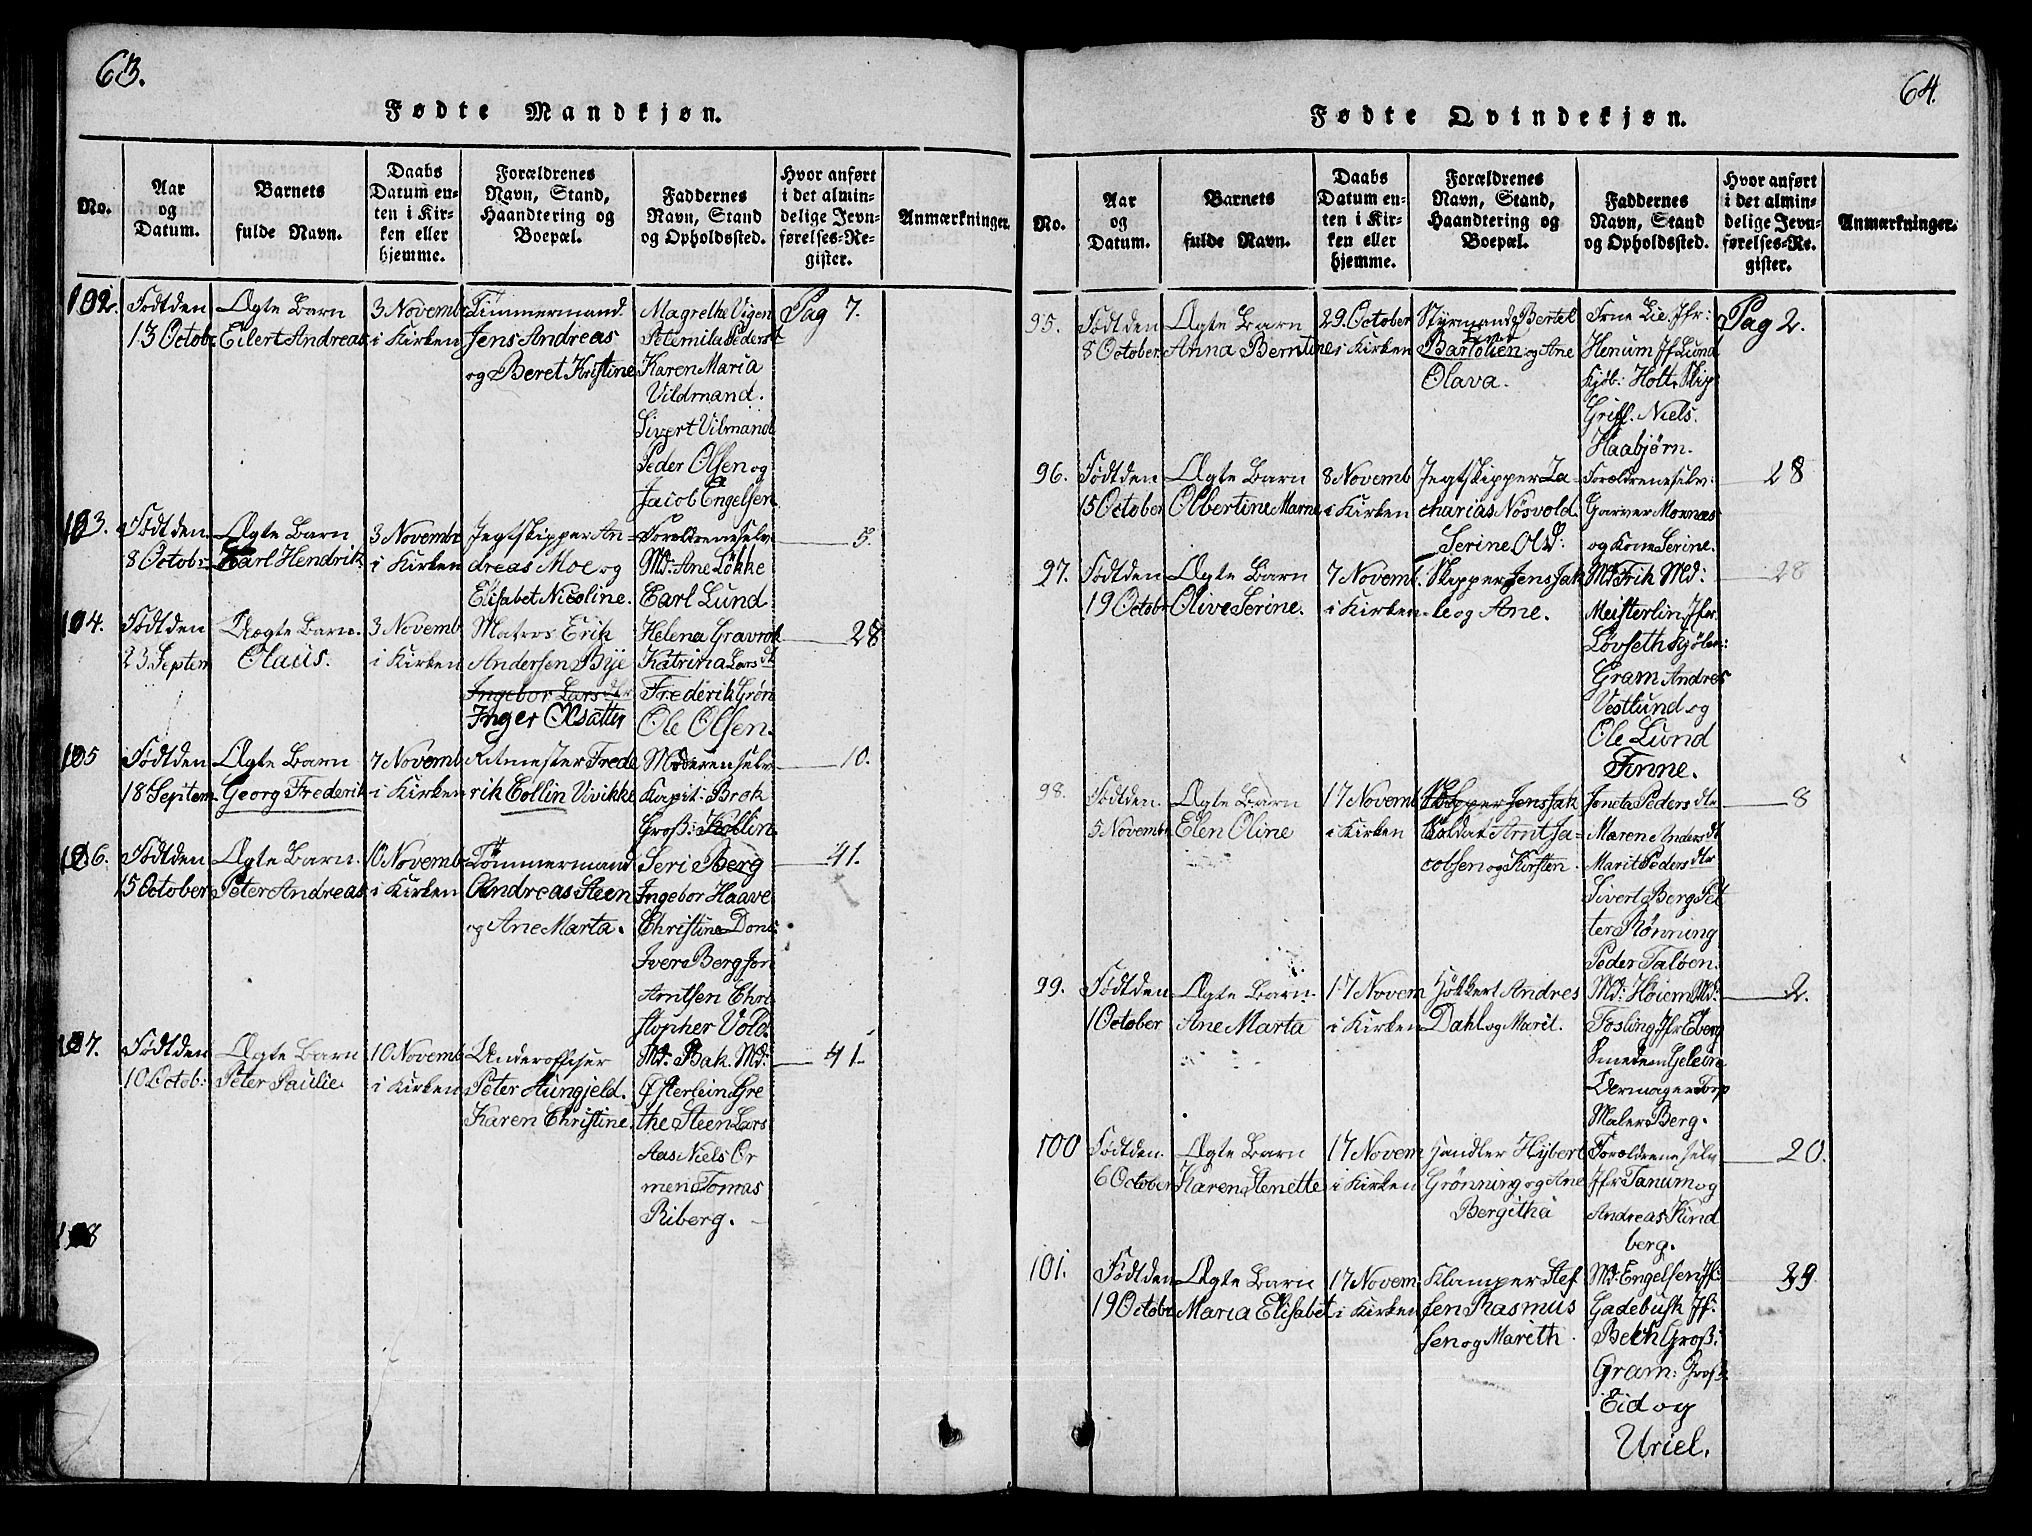 63.
Fødte Mandkjøn.
No.
Aar
og
Datum.
Barnets
fulde Navn.
Daabs
Datum en-
ten i Kir-
ken eller
hjemme.
Forældrenes
Navn, Stand,
Haandtering og
Boepæl.
Faddernes
Navn, Stand
og Opholdssted.
Hvor anført
i det almin-
delige Jevn-
førelses-Re-
gister.
Anmærkninger.
102.
Født den
13 Octobr
Ægte Barn
Eilert Andreas
3 Novembr
i Kirken
Timmermand
Jens Andreas
og Beret Kristine
Magrethe Vigen
Peternila Peders dt
Karen Maria
Vildmand.
Sivert Vilmand
Peder Olsen og
Jacob Engelsen
Pag 7.
103.
Født den
8 Octobr
Ægte Barn
Carl Hendrik
3 Novembr
i Kirken
Jegtskipper An-
dreas Moe og
Elisabet Nicoline.
Foroldrene selv
Md: Ane Løkke
Carl Lund
3.
104.
Født den
23 Septem
Uægte Barn.
Olaus.
3 Novemb
i Kirken
Matros Erik
Andersen Bye
Ingebor Lars dtr
Inger Olsatter
Helena Gravrok
Katrina Lars dt
Frederik Grøn
Ole Olsen.
28
105
Født den
18 Septem
Ægte Barn
Georg Frederik
7 Novemb
i Kirken
Ritmester Frede
rik Collin Vivikke
Moderen selv
Kapit: Brok
Groß: Kollin
10.
106.
Født den
15 October
Ægte Barn.
Peter Andreas
10 Novemb
i Kirken
Tømmermand
Andreas Steen
og Ane Marta.
Seri Berg
Ingebor Haave
Christine Dons
Iver Berg Jon
Arntsen Chri
stopher Vold.
41.
107.
Født den
10 Octob:
Ægte Barn
Peter Paulie.
10 Novemb
i Kirken
Underoffiser
Peter Aungjeld.
Karen Christine
Md: Bak. Md:
Østerlein Gre
the Steen Lars
Aas Niels Or
men Tomas
Riberg.
41.
108
64.
Fødte Qvindekjøn.
No.
Aar
og
Datum.
Barnets
fulde Navn.
Daabs
Datum en-
ten i Kir-
ken eller
hjemme.
Forældrenes
Navn, Stand,
Haandtering og
Boepæl.
Faddernes
Navn, Stand
og Opholdssted.
Hvor anført
i det almin-
delige Jevn-
førelses-Re-
gister.
Anmærkninger.
95.
Født den
8 October
Ægte Barn
Anna Berntine
29. October
i Kirken
Styrmand Bertel
Bartolien og Ane
Olava.
Frne Lie. Jfr:
Henum Jf Lund
Kjøb: Holt, Skip
Griff. Niels.
Haabjørn.
Pag 2.
96.
Født den
15 October
Ægte Barn
Olbertine Marne
8 Novemb
i Kirken
Jegtskipper Za
charias Nosvold.
Serine Old:
Foroldrene selv:
Garver Mornæs
og Kone Serine.
28
97.
Født den
19 Octobr
Ægte Barn
Olive Serine.
7 Novemb.
i Kirken
Skipper Jens Jak
le og Ane.
Md Frik Md:
Meisterlin, Jfr.
Løvseth Kjølen:
Gram Andres
Vestlund og
Ole Lund
Finne.
28
98.
Født den.
5 Novembr
Ægte Barn
Elen Oline
17 Novemb
i Kirken
Skipper Jens Jak
Soldat Arnt Ja-
cobsen og Kirsten.
Joneta Peders dtr
Maren Anders dt
Marit Peders dtr
Sivert Berg Pet
ter Rønning
Peder Taløen.
8
99.
Født den
1 October
Ægte Barn.
Ane Marta
17 Novem
i Kirken
Høkkert Andres
Dahl og Marit.
Md: Høiem Md:
Fosling Jfr Eberg
Smeden Gelebre
Uermager Torp
Maler Berg.
2.
100
Født den.
6 October
Ægte Barn
Karen Stenette
17 Novem
i Kirken
Handler Hybert
Grønning og Ane
Bergitha
Foroldrene selv
Jfr Tanum og
Andreas Kind
berg.
20.
101.
Født den
19 Octobr
Ægte Barn
Maria Elisabet
17 Novem
i Kirken
Klamper Stef
fen Rasmus
sen og Marith
Md: Engelsen Jf:
Gadebusk Jf:
Bekh Groß:
Gram: Groß:
Eid og
Uriel.
29